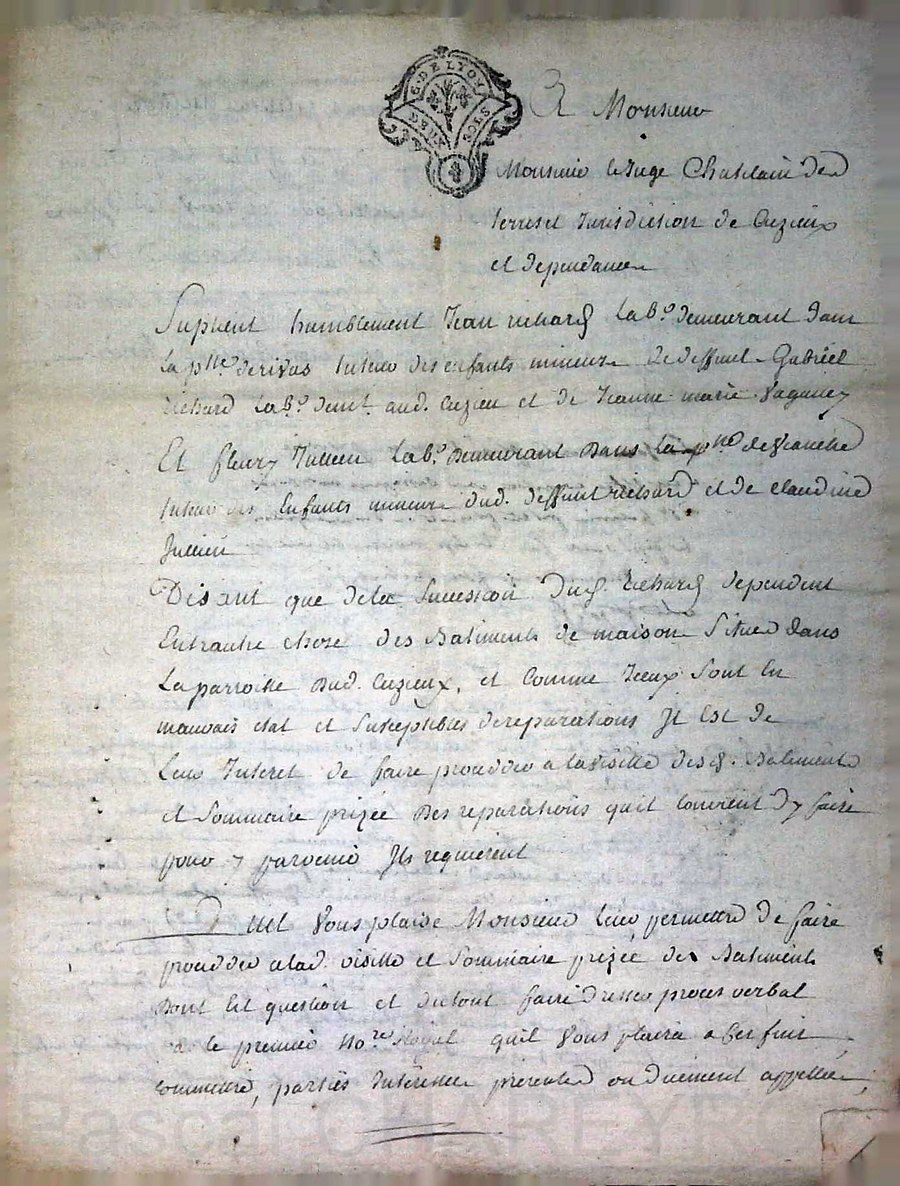 G. DE LYON
A Monsieur
Monsieur le Juge Chatelain des
terres et Jurisdiction de Cuzieux
et dependances
Suplient humblement Jean richard lab.r demeurant dans
la p.sse de rivas tuteur des enfants mineurs de deffunt Gabriel
richard lab.r demt. aud. Cuzieu et de Jeanne marie Vaganey
Et fleury Jullien lab.r Demeurant Dans la p.sse de
tuteur des Enfants mineurs dud. deffunt richard et de claudine
Jullien
Disant que de la Succession dud. richard dependent
Entrautre chose des Batiments de maison Situés dans
La parroisse Dud. Cuzieux, et Comme Iceux Sont En
mauvais etat et Susceptibles de reparations Il Est de
Leur Interet de faire proceder a la Visitte desd. Batiments
et Sommaire prizée Des reparations quil Convient d'y faire
pour y parvenir Ils requierent
Quil Vous plaise Monsieur leur permettre de faire
proceder a lad. visitte et Sommaire prizée des Batiments
Dont Est question et du tout faire dresser procès verbal
le premier No.re Royal quil Vous plaira a Ces fins
commettre, parties Interessées presentes ou duement appellées,
Pascal CHAREYRON